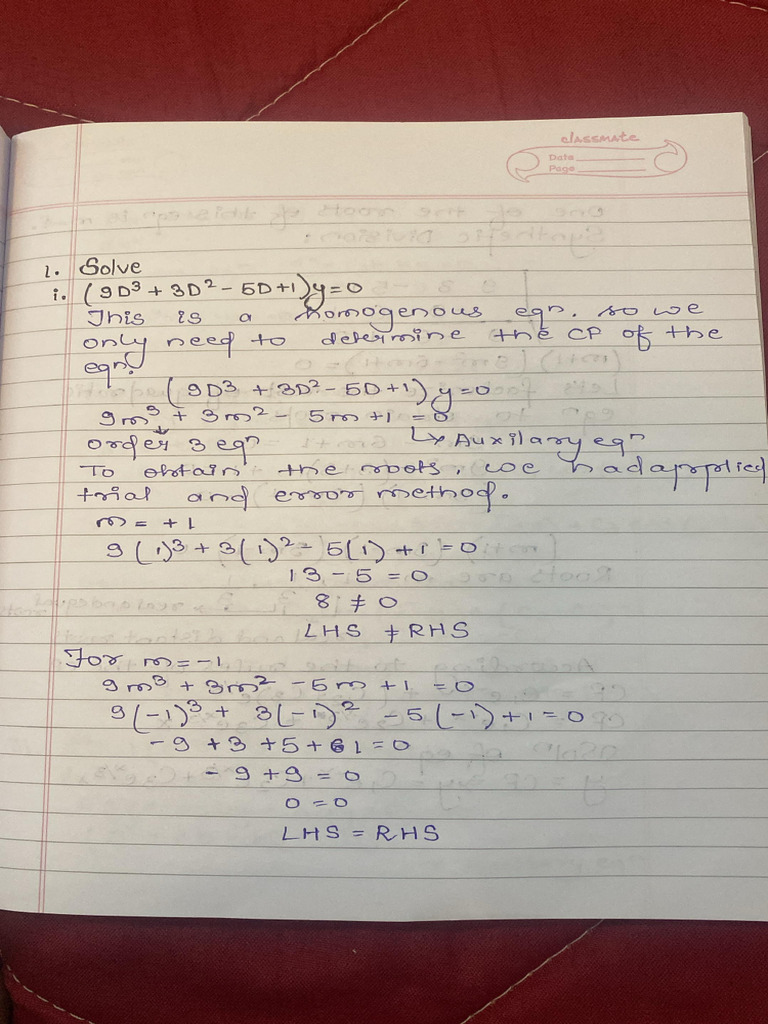 classmate
Date
Page
1. Solve
i. (9D³ + 3D² - 5D + 1)y = 0
This is a homogenous eqn. so we
only need to determine the CP of the
eqn.
(9D³ + 3D² - 5D + 1) y = 0
9m³ + 3m² - 5m + 1 = 0
order 3 eqn ↳ Auxilary eqn
To obtain the roots, we had applied
trial and error method.
m = +1
9(1)³ + 3(1)² - 5(1) + 1 = 0
13 - 5 = 0
8 ≠ 0
LHS ≠ RHS
For m = -1
9m³ + 3m² - 5m + 1 = 0
9(-1)³ + 3(-1)² - 5(-1) + 1 = 0
-9 + 3 + 5 + 1 = 0
-9 + 9 = 0
0 = 0
LHS = RHS